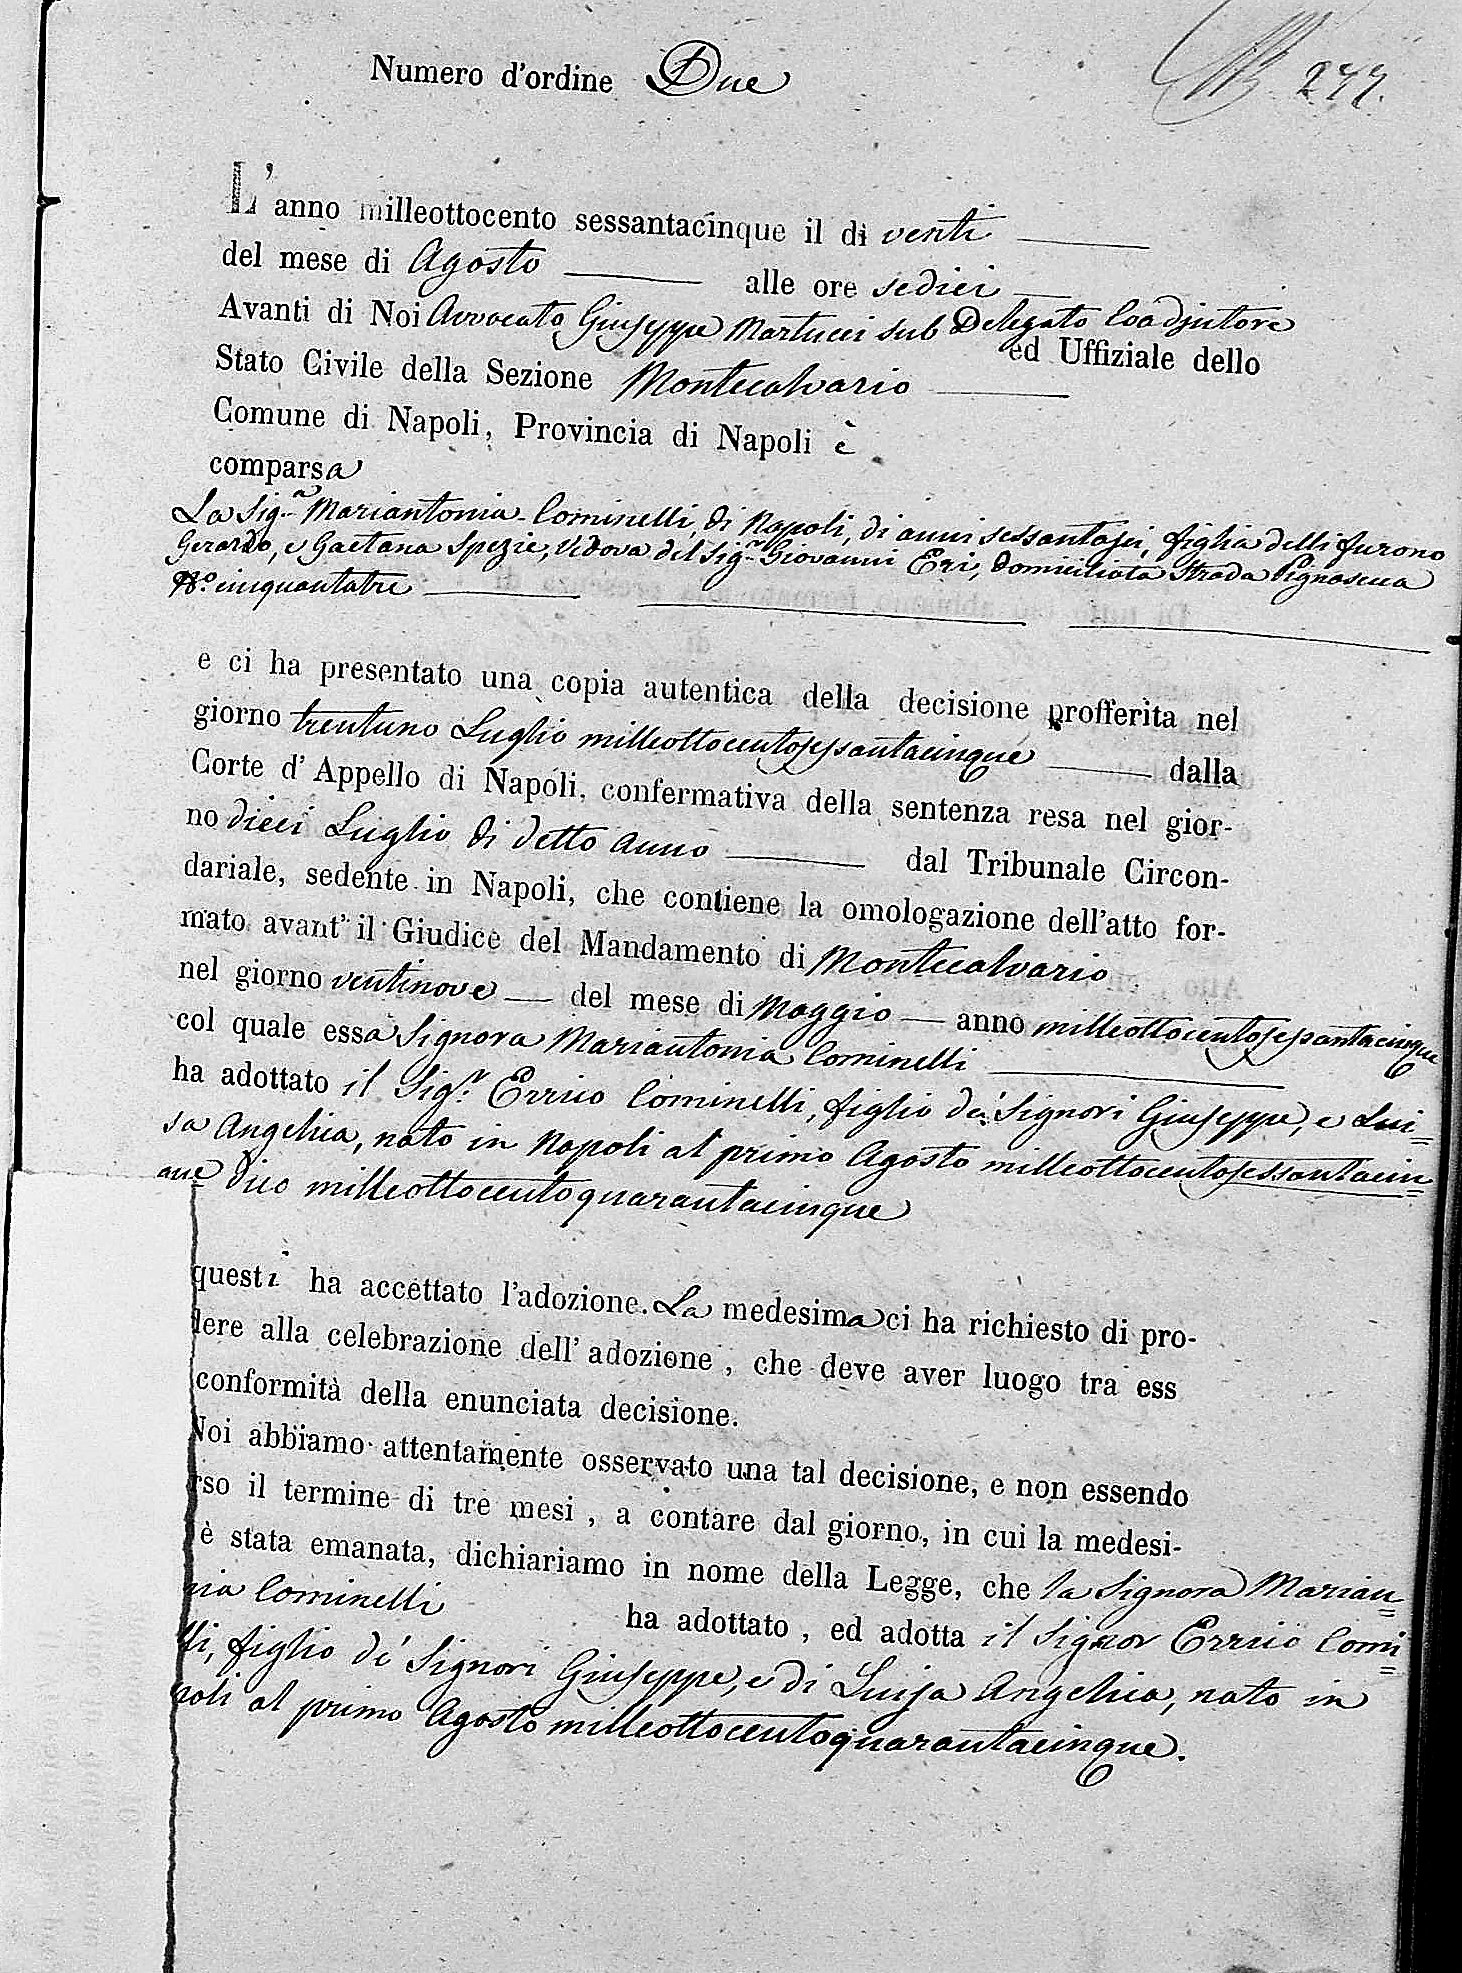 Numero d'ordine Due
277.
L'anno milleottocento sessantacinque il di venti
del mese di Agosto alle ore sedici
Avanti di Noi Avvocato Giuseppe Martucci sub Delegato Coadjutore
ed Uffiziale dello
Stato Civile della Sezione Montecalvario
Comune di Napoli, Provincia di Napoli è
comparsa
La Sig.ra Mariantonia Cominelli, di Napoli, di anni sessantasei, figlia delli furono
Gerardo, e Gaetana Spezie, Vedova del Sig.r Giovanni Eri, domiciliata Strada Pignasecca
N.o cinquantatre
e ci ha presentato una copia autentica della decisione profferita nel
giorno trentuno Luglio milleottocentosessantacinque dalla
Corte d'Appello di Napoli, confermativa della sentenza resa nel gior-
no dieci Luglio di detto anno dal Tribunale Circon-
dariale, sedente in Napoli, che contiene la omologazione dell'atto for-
mato avant' il Giudice del Mandamento di Montecalvario
nel giorno ventinove del mese di Maggio anno milleottocentosessantacinque
col quale essa Signora Mariantonia Cominelli
ha adottato il Sig.r Errico Cominelli, figlio de' Signori Giuseppe, e Lui=
sa Angelica, nato in Napoli al primo Agosto milleottocentosessantacin=
que dico milleottocentoquarantacinque
questi ha accettato l'adozione. La medesima ci ha richiesto di pro-
dere alla celebrazione dell'adozione, che deve aver luogo tra ess
conformità della enunciata decisione.
Noi abbiamo attentamente osservato una tal decisione, e non essendo
rso il termine di tre mesi, a contare dal giorno, in cui la medesi-
è stata emanata, dichiariamo in nome della Legge, che la Signora Marian=
nia Cominelli ha adottato, ed adotta il Signor Errico Comi=
lli, figlio de' Signori Giuseppe, e di Luisa Angelica, nato in
poli al primo Agosto milleottocentoquarantacinque.